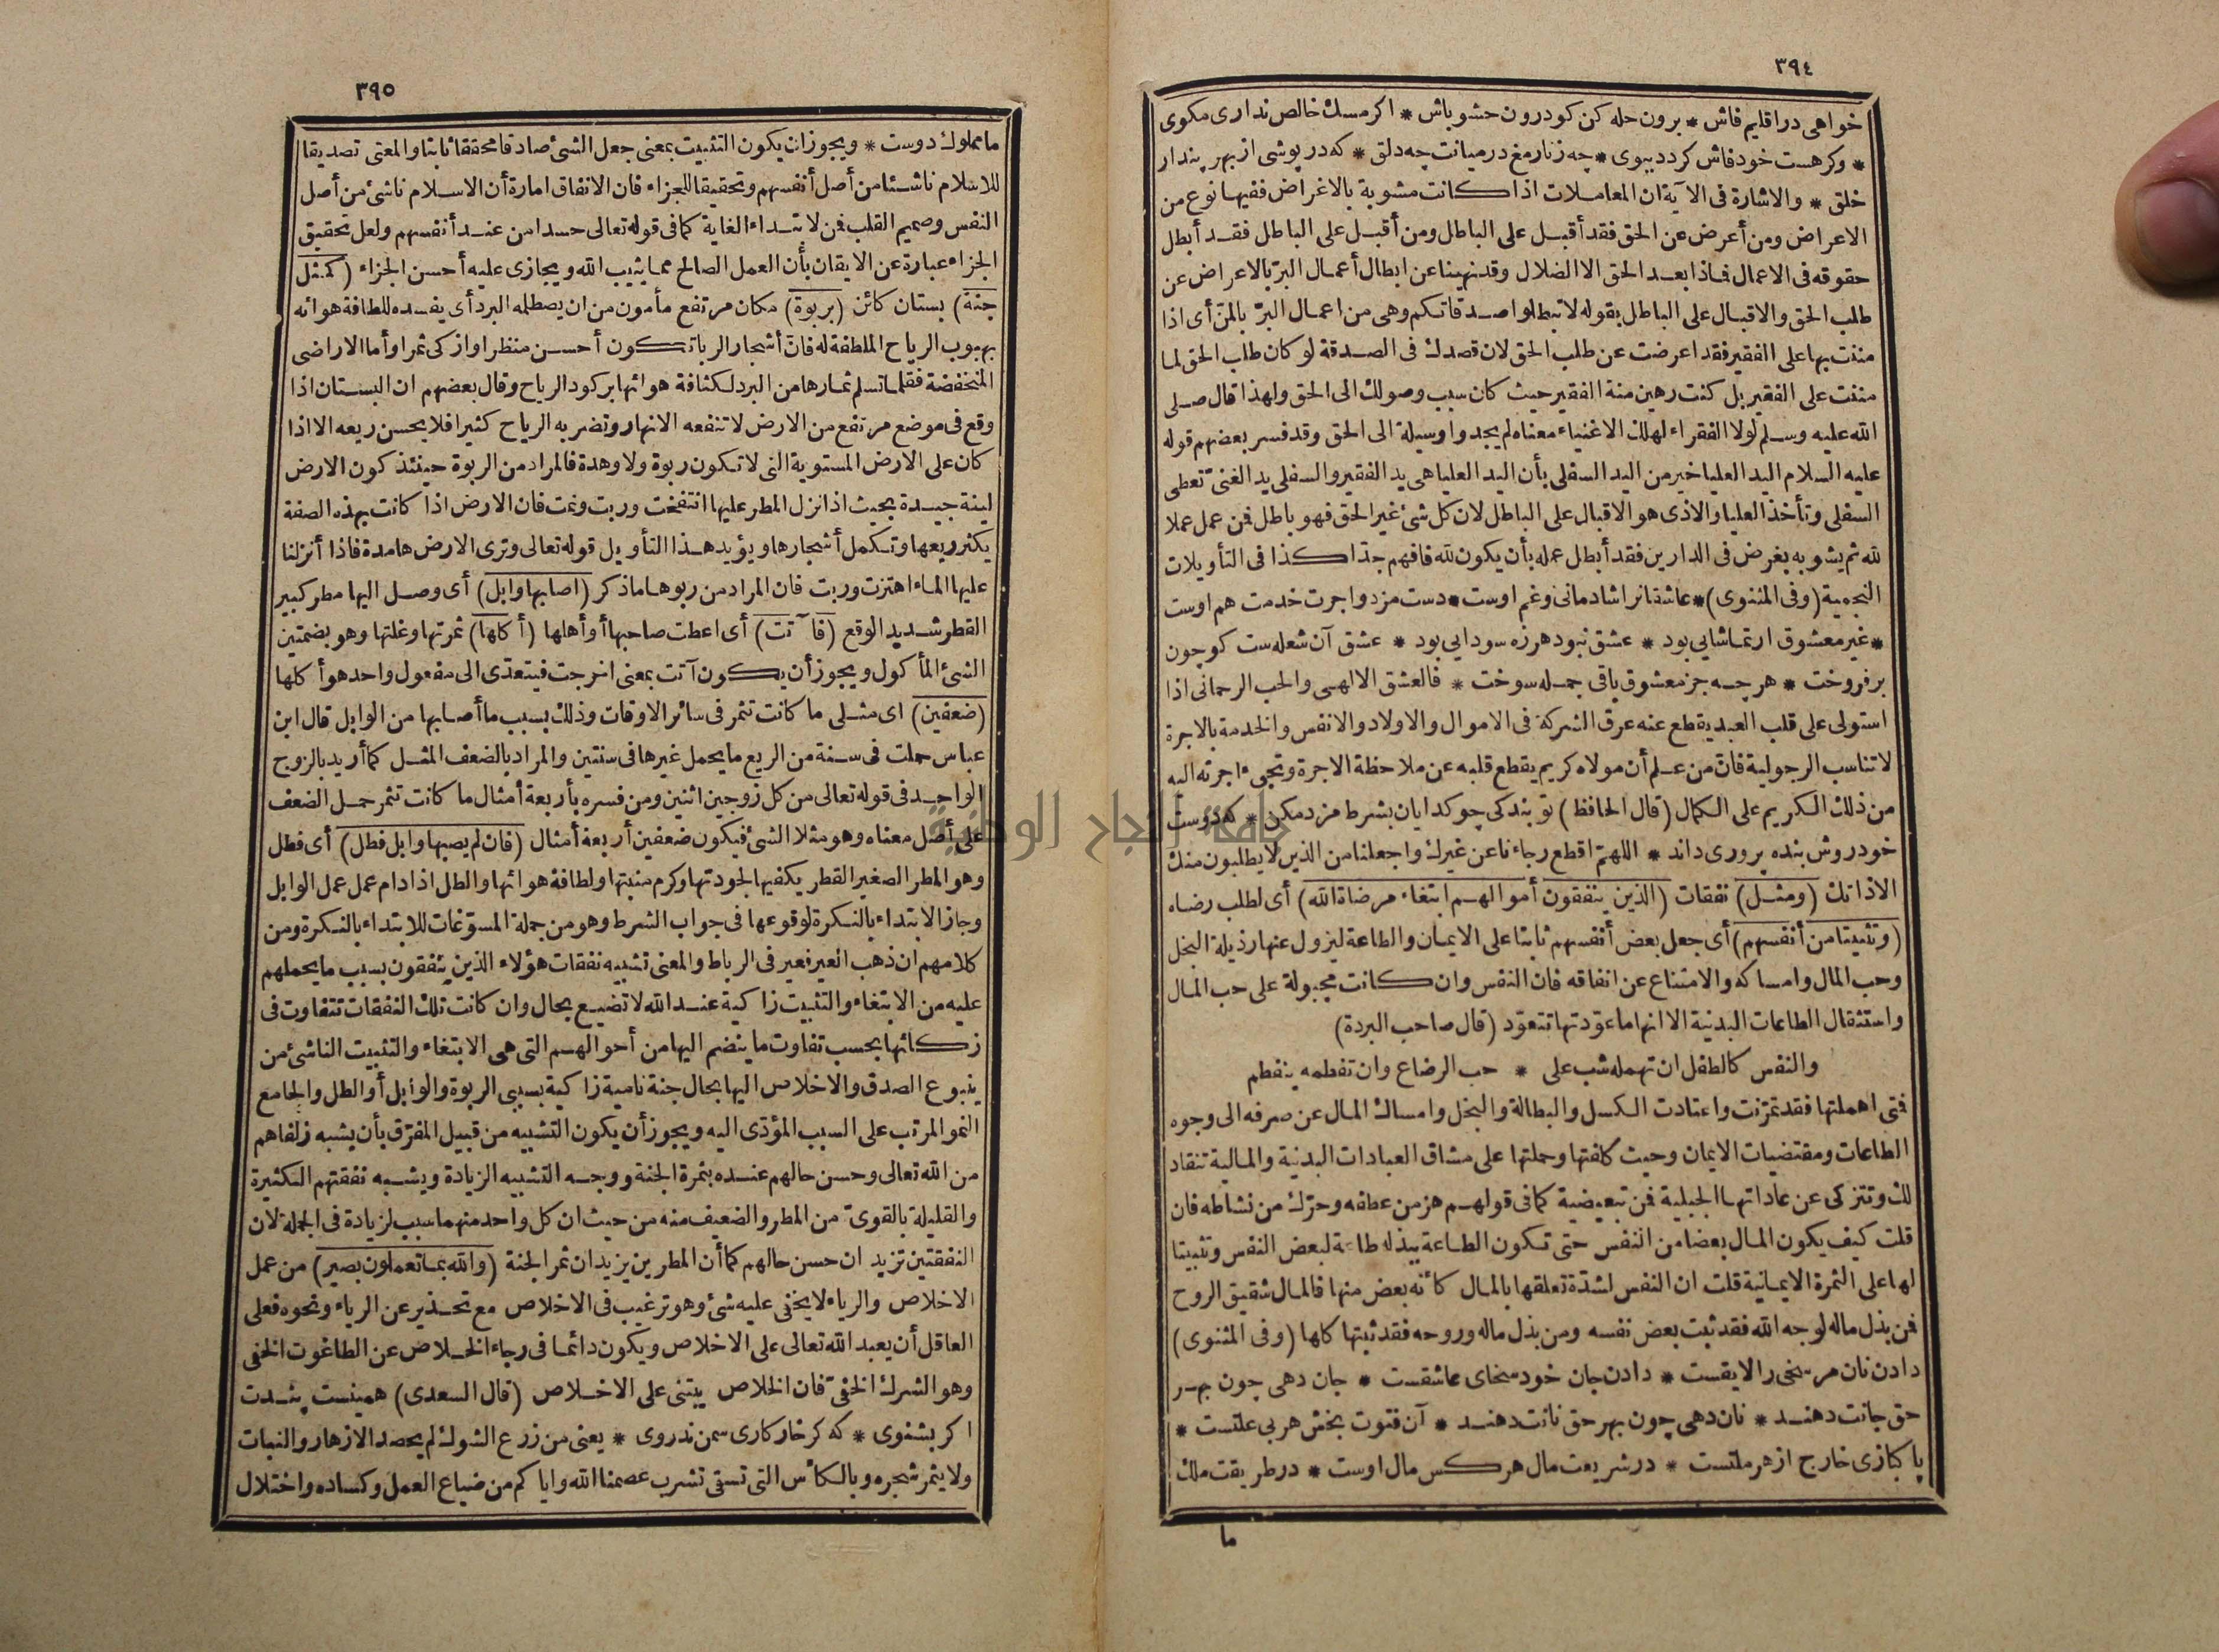 ٣٩٤
خواهى در اقليم فاش * برون حله كن كو درون حشو باش * اكر مسك خالص ندارى مكوى
* وكر هست خود فاش كردد ببوى * چه زنار مغ در ميانت چه دلق * كه در پوشى از بهر پندار
خلق * والاشارة فى الآية ان المعاملات اذا كانت مشوبة بالاغراض ففيها نوع من
الاعراض ومن أعرض عن الحق فقد أقبل على الباطل ومن أقبل على الباطل فقد أبطل
حقوقه فى الاعمال فماذا بعد الحق الا الضلال وقد نهينا عن ابطال أعمال البرّ بالاعراض عن
طلب الحق والاقبال على الباطل بقوله لا تبطلوا صدقاتكم وهى من اعمال البرّ بالمنّ أى اذا
مننت بها على الفقير فقد اعرضت عن طلب الحق لان قصدك فى الصدقة لو كان طلب الحق لما
مننت على الفقير بل كنت رهين منة الفقير حيث كان سبب وصولك الى الحق ولهذا قال صلى
الله عليه وسلم لولا الفقراء لهلك الاغنياء معناه لم يجدوا وسيلة الى الحق وقد فسر بعضهم قوله
عليه السلام اليد العليا خير من اليد السفلى بأن اليد العليا هى يد الفقير والسفلى يد الغنىّ تعطى
السفلى وتأخذ العليا والاذى هو الاقبال على الباطل لان كل شئ غير الحق فهو باطل فمن عمل عملا
لله ثم يشوبه بغرض فى الدارين فقد أبطل عمله بأن يكون لله فافهم جدّا كذا فى التأويلات
النجمية (وفى المثنوى) * عاشقانرا شادمانى وغم اوست * دست مزد واجرت خدمت هم اوست
* غير معشوق ار تماشايى بود * عشق نبود هرزه سودايى بود * عشق آن شعله ست كو چون
برفروخت * هر چه جز معشوق باقى جمله سوخت * فالعشق الالهى والحب الرحمانى اذا
استولى على قلب العبد يقطع عنه عرق الشركة فى الاموال والاولاد والانفس والخدمة بالاجرة
لا تناسب الرجولية فانّ من علم أن مولاه كريم يقطع قلبه عن ملاحظة الاجرة وتجىء اجرته اليه
من ذلك الكريم على الكمال (قال الحافظ) تو بندكى چو كدايان بشرط مزد مكن * كه دوست
خود روش بنده پرورى داند * اللهمّ اقطع رجاءنا عن غيرك واجعلنا من الذين لا يطلبون منك
الا ذاتك (ومثل) نفقات (الذين ينفقون أموالهم ابتغاء مرضاة الله) أى لطلب رضاه
(وتثبيتا من أنفسهم) أى جعل بعض أنفسهم ثابتا على الايمان والطاعة ليزول عنها رذيلة البخل
وحب المال وامساكه والامتناع عن انفاقه فان النفس وان كانت مجبولة على حب المال
واستثقال الطاعات البدنية الا انها ما عوّدتها تتعوّد (قال صاحب البردة)
والنفس كالطفل ان تهمله شب على * حب الرضاع وان تفطمه ينفطم
فمتى اهملتها فقد تمرّنت واعتادت الكسل والبطالة والبخل وامساك المال عن صرفه الى وجوه
الطاعات ومقتضيات الايمان وحيث كلفتها وحملتها على مشاق العبادات البدنية والمالية تنقاد
لك وتتزكى عن عاداتها الجبلية فمن تبعيضية كما فى قولهم هز من عطفه وحرّك من نشاطه فان
قلت كيف يكون المال بعضا من النفس حتى تكون الطاعة ببذله طاعة لبعض النفس وتثبيتا
لها على الثمرة الايمانية قلت ان النفس لشدّة تعلقها بالمال كأنه بعض منها فالمال شقيق الروح
فمن بذل ماله لوجه الله فقد ثبت بعض نفسه ومن بذل ماله وروحه فقد ثبتها كلها (وفى المثنوى)
دادن نان مر سخى را لايقست * دادن جان خود سخاى عاشقست * جان دهى چون بهر
حق جانت دهند * نان دهى چون بهر حق نانت دهند * آن فتوت بخش هر بى علتست *
پاكبازى خارج از هر ملتست * در شريعت مال هر كس مال اوست * در طريقت ملك
ما
٣٩٥
ما مملوك دوست * ويجوز ان يكون التثبيت بمعنى جعل الشئ صادقا محققا ثابتا والمعنى تصديقا
للاسلام ناشئا من أصل أنفسهم وتحقيقا للجزاء فان الانفاق امارة أن الاسلام ناشئ من أصل
النفس وصميم القلب فمن لابتداء الغاية كما فى قوله تعالى حسدا من عند أنفسهم ولعل تحقيق
الجزاء عبارة عن الايقان بأن العمل الصالح مما يثيب الله ويجازى عليه أحسن الجزاء (كمثل
جنة) بستان كائن (بربوة) مكان مرتفع مأمون من ان يصطلمه البرد أى يفسده للطافة هوائه
بهبوب الرياح الملطفة له فانّ أشجار الربا تكون أحسن منظرا وازكى ثمرا وأما الاراضى
المنخفضة فقلما تسلم ثمارها من البرد لكثافة هوائها بركود الرياح وقال بعضهم ان البستان اذا
وقع فى موضع مرتفع من الارض لا تنفعه الانهار وتضر به الرياح كثيرا فلا يحسن ريعه الا اذا
كان على الارض المستوية التى لا تكون ربوة ولا وهدة فالمراد من الربوة حينئذ كون الارض
لينة جيدة بحيث اذا نزل المطر عليها انتفخت وربت ونمت فان الارض اذا كانت بهذه الصفة
يكثر ريعها وتكمل أشجارها ويؤيد هذا التأويل قوله تعالى وترى الارض هامدة فاذا أنزلنا
عليها الماء اهتزت وربت فان المراد من ربوها ما ذكر (اصابها وابل) أى وصل اليها مطر كبير
القطر شديد الوقع (فآتت) أى اعطت صاحبها أو أهلها (أكلها) ثمرتها وغلتها وهو بضمتين
الشئ المأكول ويجوز أن يكون آتت بمعنى اخرجت فيتعدّى الى مفعول واحد هو أكلها
(ضعفين) اى مثلى ما كانت تثمر فى سائر الاوقات وذلك بسبب ما أصابها من الوابل قال ابن
عباس حملت فى سنة من الريع ما يحمل غيرها فى سنتين والمراد بالضعف المثل كما أريد بالزوج
الواحد فى قوله تعالى من كل زوجين اثنين ومن فسره بأربعة أمثال ما كانت تثمر حمل الضعف
على أصل معناه وهو مثلا الشئ فيكون ضعفين أربعة أمثال (فان لم يصبها وابل فطل) أى فطل
وهو المطر الصغير القطر يكفيها لجودتها وكرم منبتها ولطافة هوائها والطل اذا دام عمل عمل الوابل
وجاز الابتداء بالنكرة لوقوعها فى جواب الشرط وهو من جملة المسوّغات للابتداء بالنكرة ومن
كلامهم ان ذهب العير فعير فى الرباط والمعنى تشبيه نفقات هؤلاء الذين ينفقون بسبب ما يحملهم
عليه من الابتغاء والتثبيت زاكية عند الله لا تضيع بحال وان كانت تلك النفقات تتفاوت فى
زكائها بحسب تفاوت ما ينضم اليها من أحوالهم التى هى الابتغاء والتثبيت الناشئ من
ينبوع الصدق والاخلاص اليها بحال جنة نامية زاكية بسببى الربوة والوابل أو الطل والجامع
النمو المرتب على السبب المؤدّى اليه ويجوز أن يكون التشبيه من قبيل المفرّق بأن يشبه زلفاهم
من الله تعالى وحسن حالهم عنده بثمرة الجنة ووجه التشبيه الزيادة ويشبه نفقتهم الكثيرة
والقليلة بالقوىّ من المطر والضعيف منه من حيث ان كل واحد منهما سبب لزيادة فى الجملة لان
النفقتين تزيد ان حسن حالهم كما أن المطرين يزيدان ثمر الجنة (والله بما تعملون بصير) من عمل
الاخلاص والرياء لا يخفى عليه شئ وهو ترغيب فى الاخلاص مع تحذير عن الرياء ونحوه فعلى
العاقل أن يعبد الله تعالى على الاخلاص ويكون دائما فى رجاء الخلاص عن الطاغوت الخفى
وهو الشرك الخفىّ فان الخلاص يبتنى على الاخلاص (قال السعدى) همينست پندت
اكر بشنوى * كه كر خار كارى سمن ندروى * يعنى من زرع الشوك لم يحصد الازهار والنبات
ولا يثمر شجره وبالكأس التى تسقى تشرب عصمنا الله واياكم من ضياع العمل وكساده واختلال
جامعة النجاح الوطنية